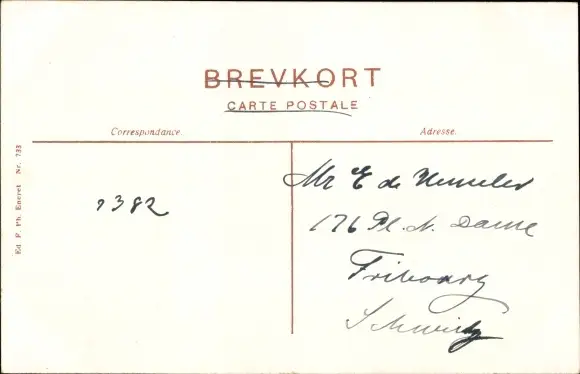 BREVKORT
CARTE POSTALE
Correspondance.
Adresse.
Ed. P. Ph. Eneret Nr. 733
Mr E de
176 Pl. N. Dame
Fribourg
Schweiz